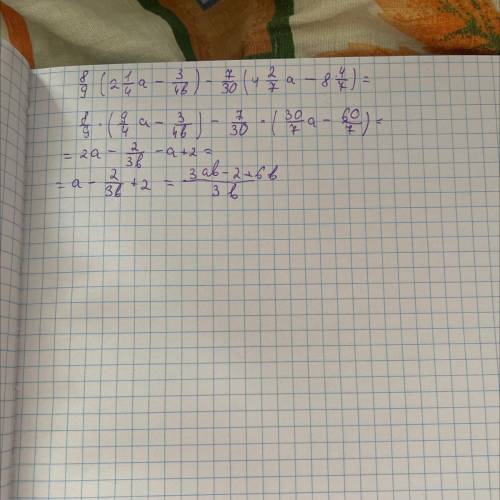 8/9 (2 1/4 a - 3/4b) - 7/30 (4 2/7 a - 8 4/7) =
8/9 · (9/4 a - 3/4b) - 7/30 · (30/7 a - 60/7) =
= 2a - 2/3b - a + 2 =
= a - 2/3b + 2 = 3ab - 2 + 6b / 3b